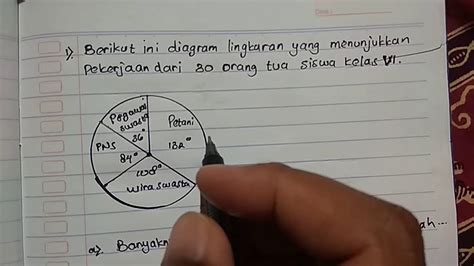 1). Berikut ini diagram lingkaran yang menunjukkan
Pekerjaan dari 30 orang tua siswa kelas VI.
Pegawai
swasta
36°
Petani
132°
PNS
84°
108°
wiraswasta
a). Banyakn
ah...